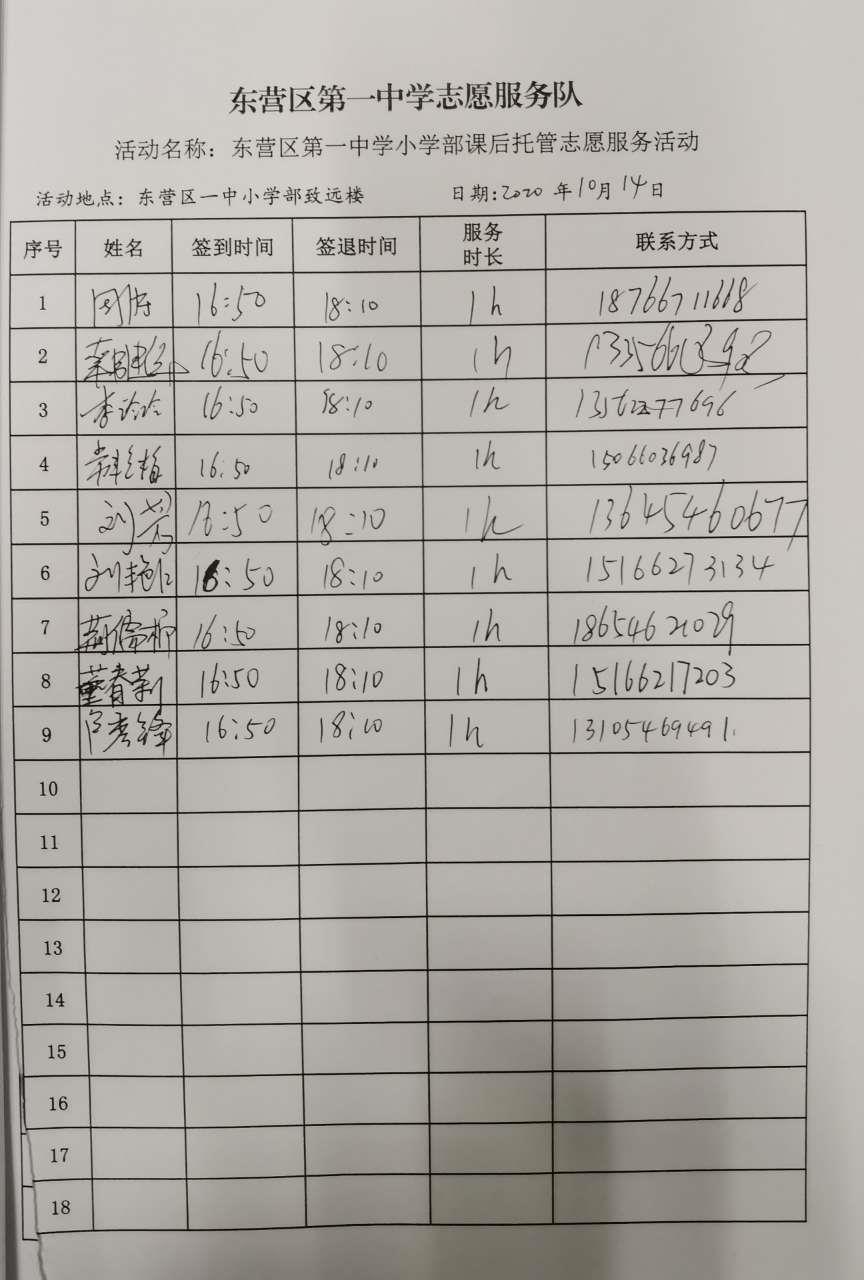 东营区第一中学志愿服务队
活动名称：东营区第一中学小学部课后托管志愿服务活动
活动地点：东营区一中小学部致远楼 日期:2020 年10月14日
序号 姓名 签到时间 签退时间 服务时长 联系方式
1 16:50 18:10 1h 18766711668
2 16:50 18:10 1h
3 李玲玲 16:50 18:10 1h 13562277696
4 16:50 18:10 1h 15066036987
5 刘芳 16:50 18:10 1h 13645460677
6 刘艳红 16:50 18:10 1h 15166273134
7 16:50 18:10 1h 18654621029
8 董春莉 16:50 18:10 1h 15166217203
9 16:50 18:10 1h 13105469491
10
11
12
13
14
15
16
17
18